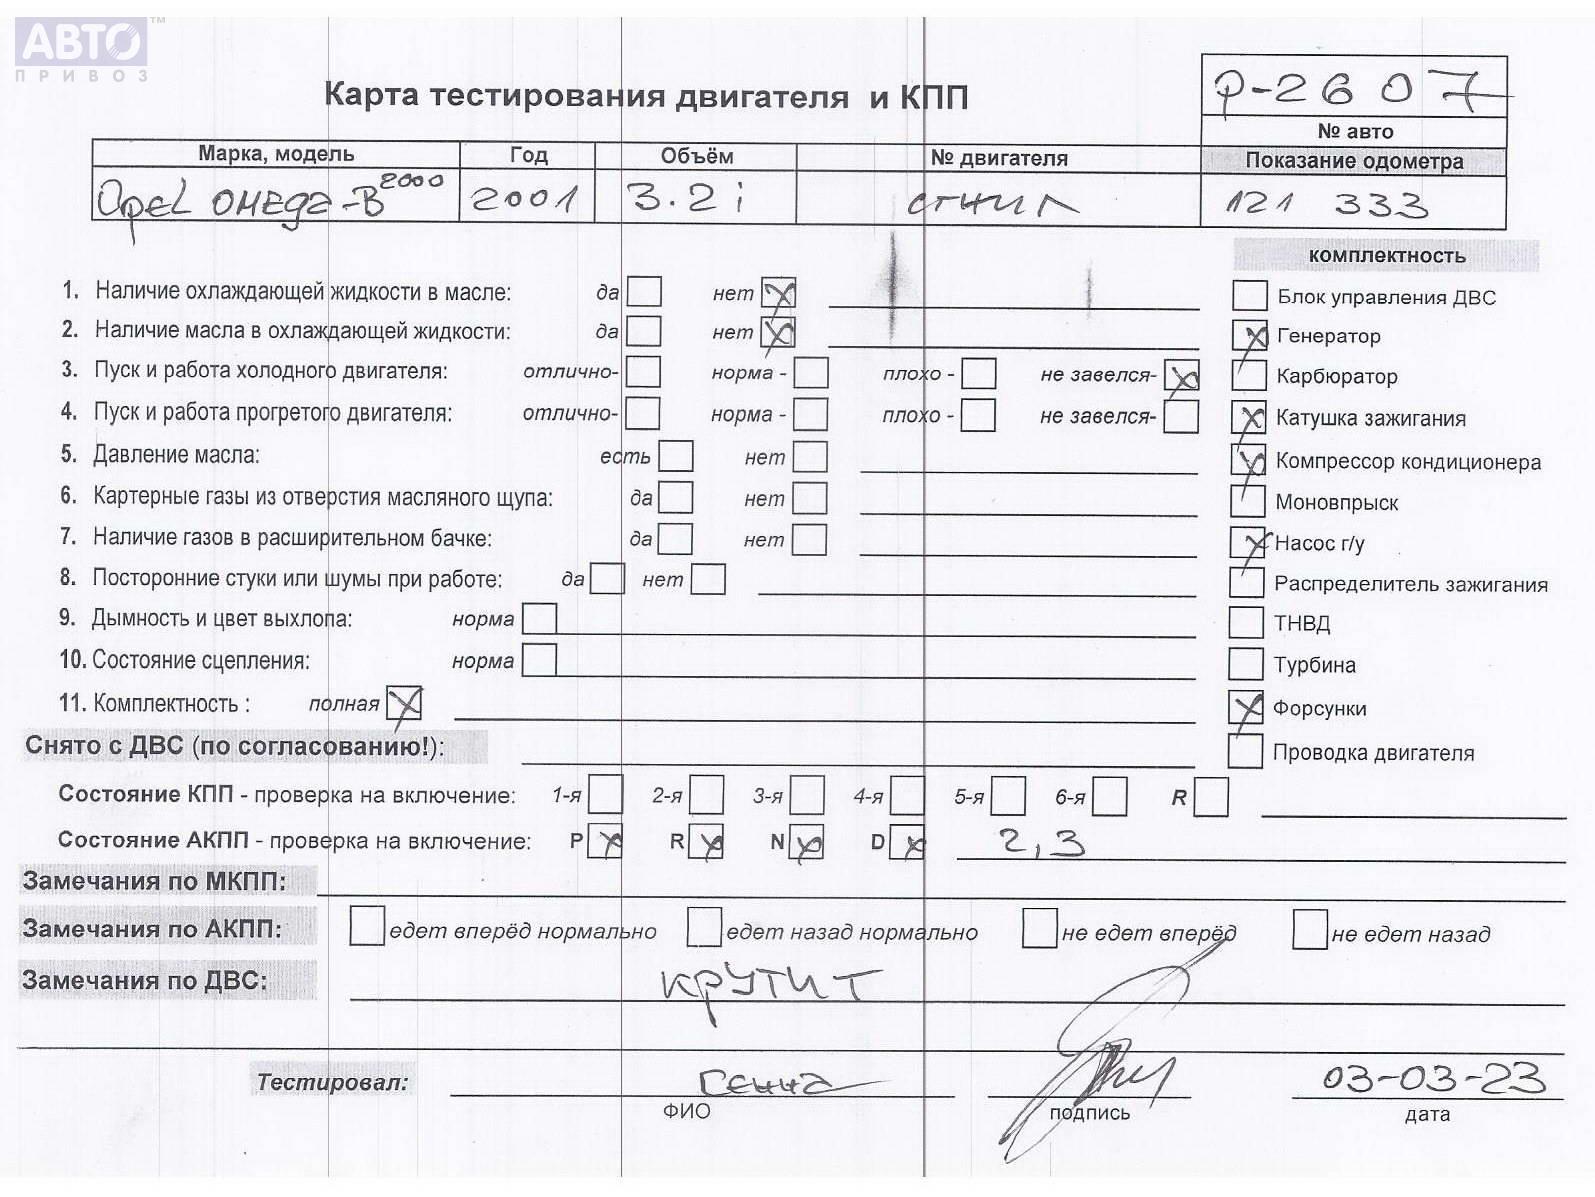 АВТО™
ПРИВОЗ
Карта тестирования двигателя и КПП
р-2607
№ авто
Марка, модель Год Объём № двигателя Показание одометра
Opel OMEGA-B 2000 2001 3.2i сгнил 121 333
комплектность
1. Наличие охлаждающей жидкости в масле: да нет x
Блок управления ДВС
2. Наличие масла в охлаждающей жидкости: да нет x
Генератор x
3. Пуск и работа холодного двигателя: отлично- норма - плохо - не завелся- x
Карбюратор
4. Пуск и работа прогретого двигателя: отлично- норма - плохо - не завелся-
Катушка зажигания x
5. Давление масла: есть нет
Компрессор кондиционера x
6. Картерные газы из отверстия масляного щупа: да нет
Моновпрыск
7. Наличие газов в расширительном бачке: да нет
Насос г/у x
8. Посторонние стуки или шумы при работе: да нет
Распределитель зажигания
9. Дымность и цвет выхлопа: норма
ТНВД
10. Состояние сцепления: норма
Турбина
11. Комплектность : полная x
Форсунки x
Снято с ДВС (по согласованию!):
Проводка двигателя
Состояние КПП - проверка на включение: 1-я 2-я 3-я 4-я 5-я 6-я R
Состояние АКПП - проверка на включение: P x R x N x D x 2,3
Замечания по МКПП:
Замечания по АКПП: едет вперёд нормально едет назад нормально не едет вперёд не едет назад
Замечания по ДВС: крутит
Тестировал: Генна 03-03-23
ФИО подпись дата